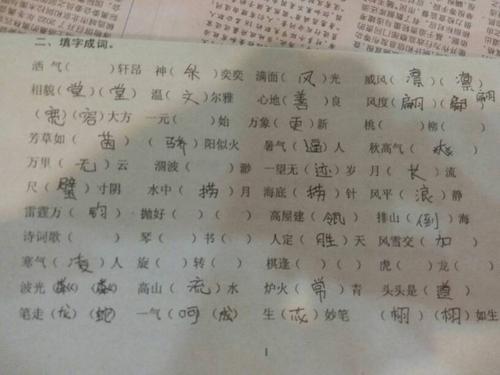 二、填字成词。
洒 气（ ）轩昂 神（采）奕奕 满面（风）光 威风（凛）（凛）
相貌（堂）（堂） 温（文）尔雅 心地（善）良 风度（翩）（翩）
（宽）（容）大方 一元（ ）始 万象（更）新 桃（ ）柳（ ）
芳草如（茵）（骄）阳似火 暑气（逼）人 秋高气（ ）
万里（无）云 涸波（ ）渺 一望无（迹）岁 月（长）流
尺（璧）寸阴 水中（捞）月 海底（捞）针 风平（浪）静
雷霆万（钧） 抛好（ ）（ ） 高屋建（瓴） 排山（倒）海
诗词歌（ ） 琴（ ）书（ ） 人定（胜）天 风雪交（加）
寒气（凌）人 旋（ ）转（ ） 棋逢（ ）（ ） 虎（ ）龙（ ）
波光（粼）（粼） 高山（流）水 炉火（常）青 头头是（道）
笔走（龙）（蛇） 一气（呵）（成） 生（花）妙笔 （栩）（栩）如生
1